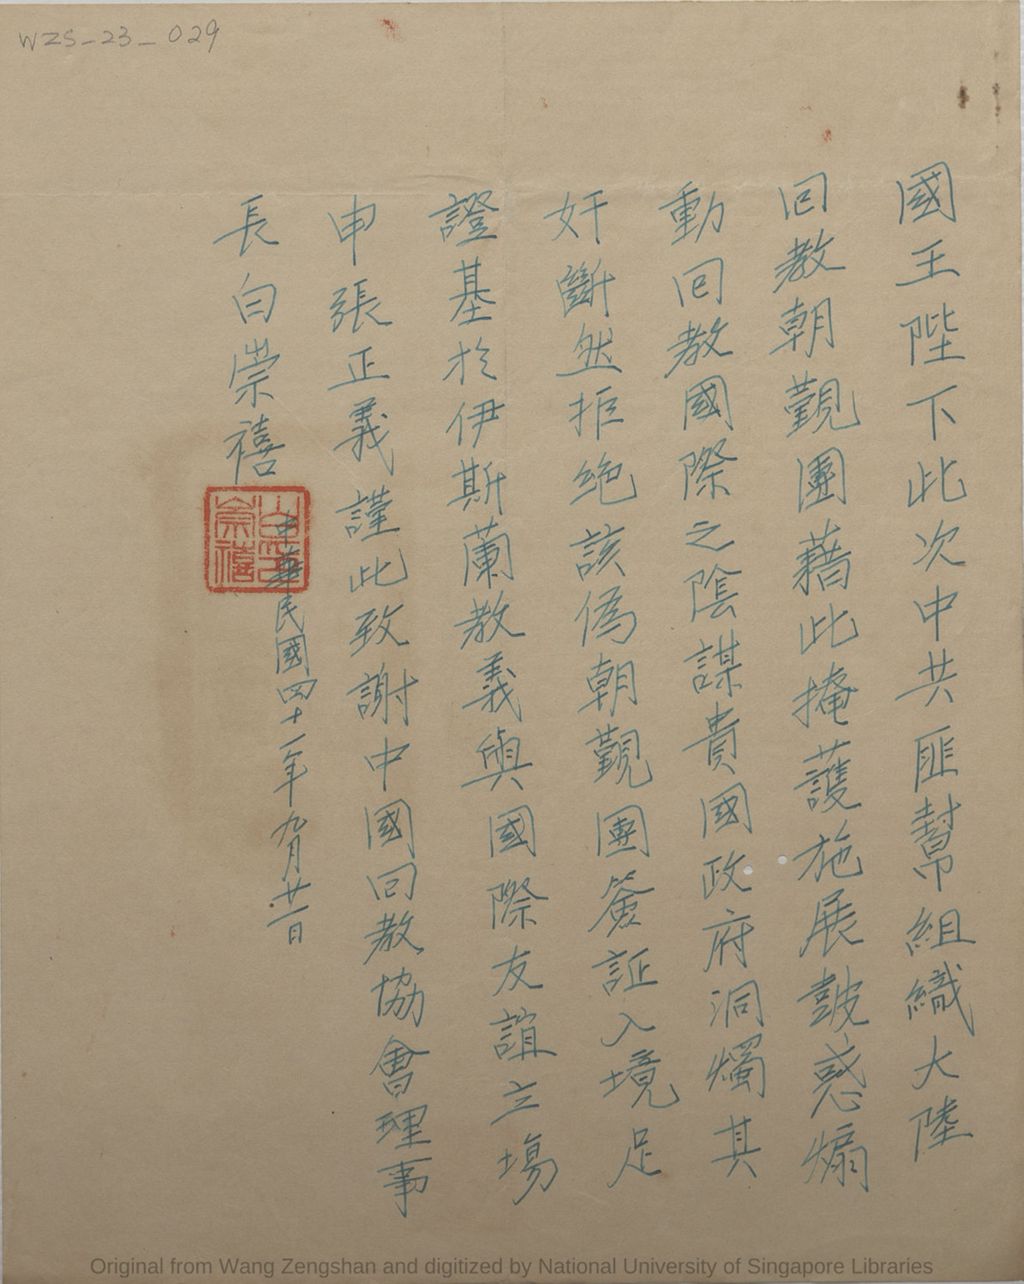 WZS-23-029
國王陛下此次中共匪幫組織大陸
回教朝觀團藉此掩護施展鼓惑煽
動回教國際之陰謀貴國政府洞燭其
奸斷然拒絕該偽朝觀團簽証入境足
證基於伊斯蘭教義與國際友誼立場
申張正義謹此致謝中國回教協會理事
長白崇禧
白崇禧
中華民國四十一年九月廿一日
Original from Wang Zengshan and digitized by National University of Singapore Libraries